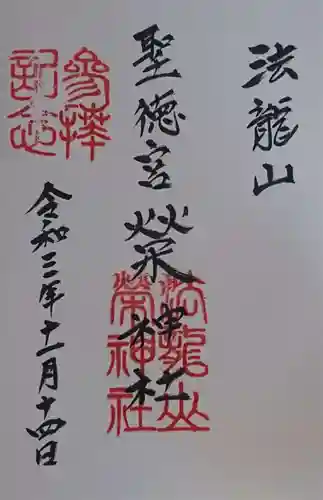 法龍山
聖徳宮 榮神社
法龍山
榮神社
参拝
記念
令和三年十一月十四日